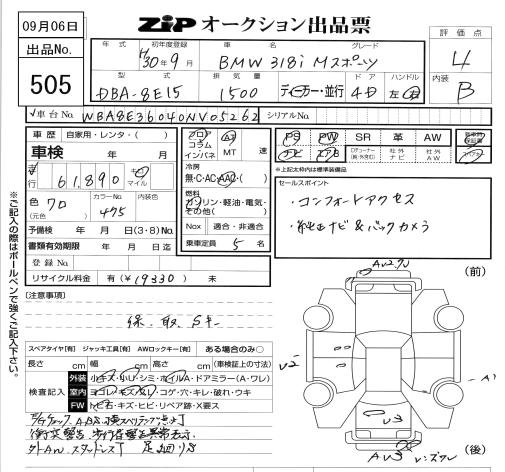 09月06日
ZIP オークション出品票
出品No.
505
年式 初年度登録 車名 グレード
H30年9月 BMW 318i Mスポーツ
型式 排気量 ドア ハンドル
DBA-8E15 1500 ディーラー・並行 4D 左 右
評価点
4
内装
B
車台No. WBA8E36040NV05262 シリアルNo.
車歴 自家用・レンタ・( )
車検 年 月
走行 61,890 キロ マイル
色 クロ カラーNo. 475 内装色
(元色)
予備検 年 月 日(3・8)No.
書類有効期限 年 月 日迄
登録No.
リサイクル料金 有(¥19330) 未
フロア コラム インパネ
AT MT 速
冷房
無・C・AC・AAC・( )
燃料
ガソリン・軽油・電気・その他( )
Nox 適合・非適合
乗車定員 5 名
PS PW SR 革 AW
ナビ エアB 社外ナビ 社外AW
※上記太枠内は標準装備品
セールスポイント
・コンフォートアクセス
・純正ナビ&バックカメラ
※ご記入の際はボールペンで強くご記入下さい。
[注意事項]
保、取、Sキー
スペアタイヤ[有] ジャッキ工具[有] AWロックキー[有] ある場合のみ○
長さ cm 幅 cm 高さ cm (車検証上の寸法)
検査記入
外装 小キズ・小U・シミ・ホイルA・ドアミラー(A・ワレ)
室内 ヨゴレ・キズ・スレ・コゲ・穴・キレ・破れ・ウキ
FW トビ石・キズ・ヒビ・リペア跡・X要ス
(前)
V2
A1
V3
(後)